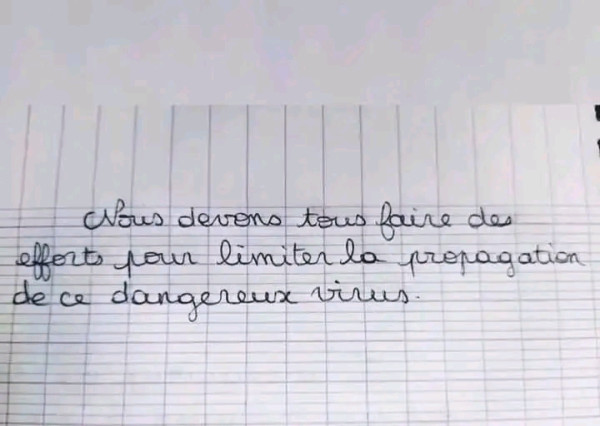 Nous devons tous faire des
efforts pour limiter la propagation
de ce dangereux virus.